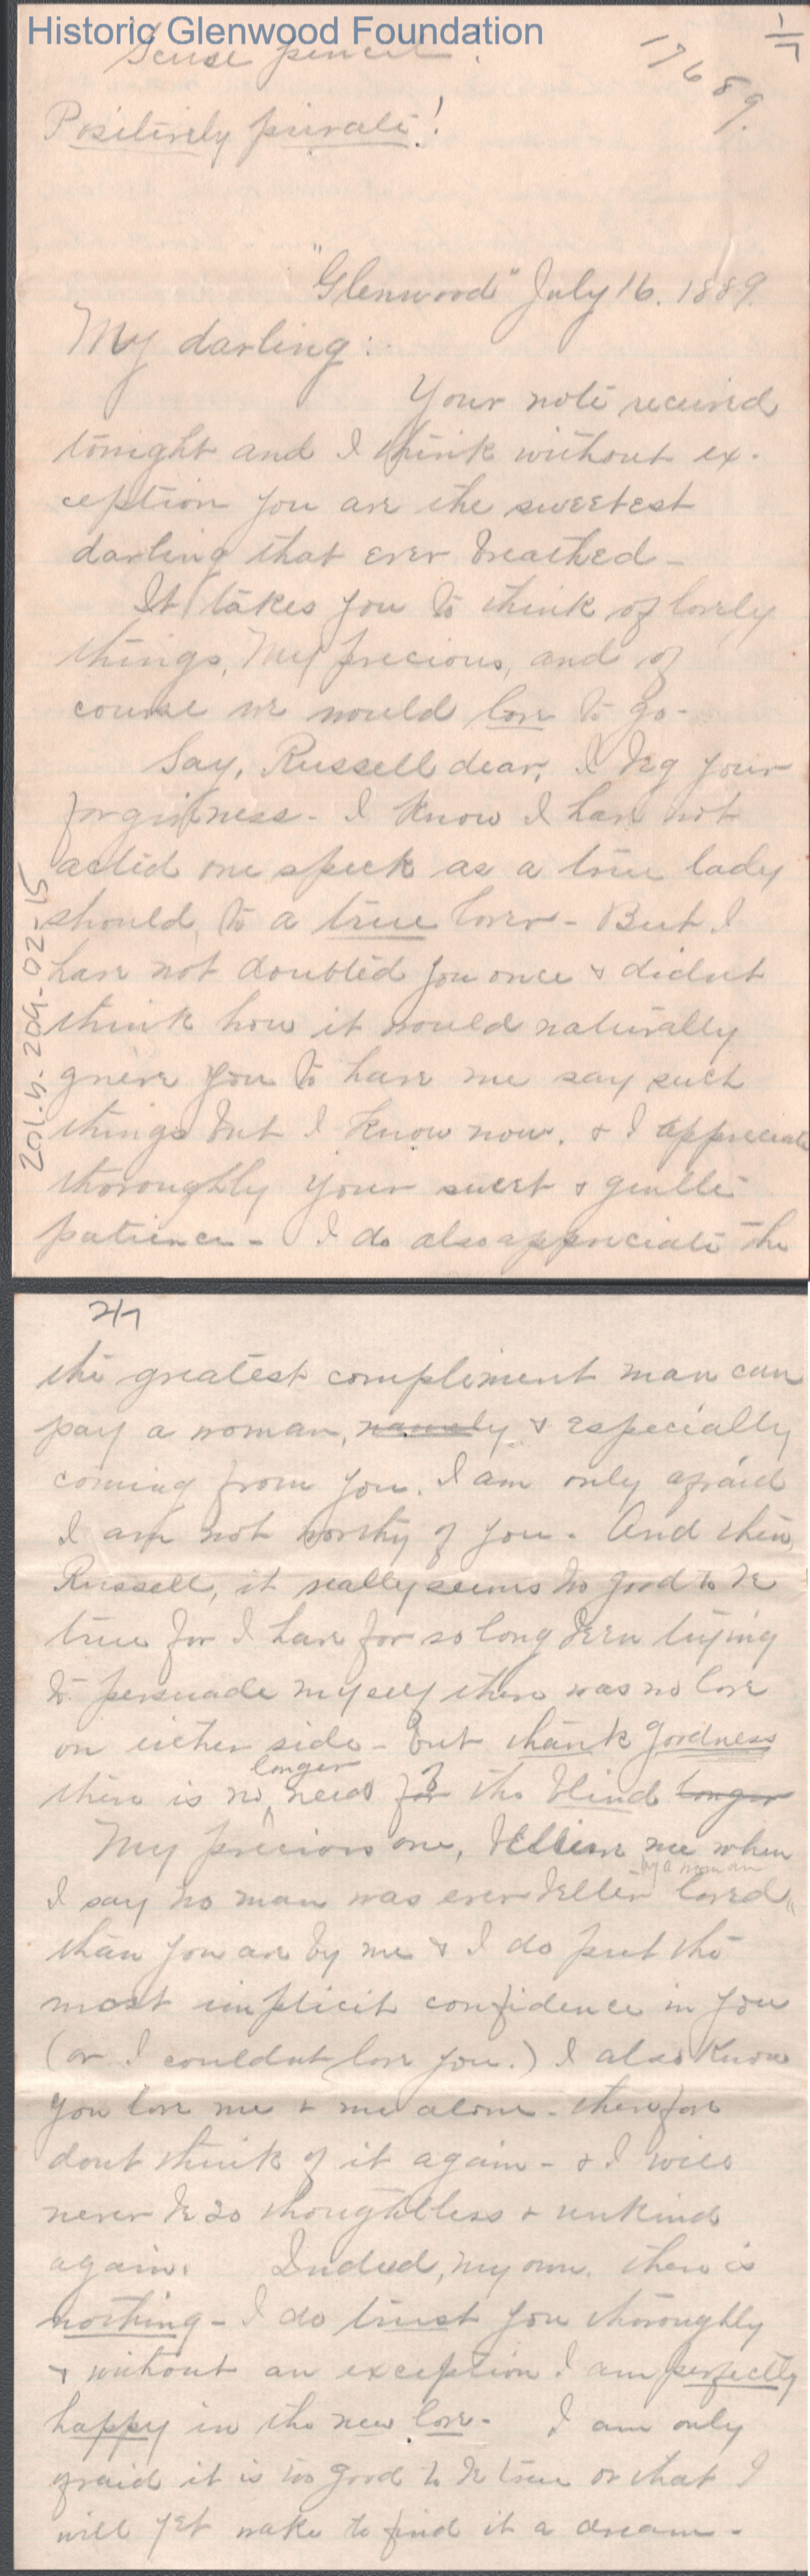 Historic Glenwood Foundation
1/7
17689.
Scuse pencil.
Positively private!
"Glenwood" July 16. 1889.
My darling:
Your note received
tonight and I think without ex-
ception you are the sweetest
darling that ever breathed -
It takes you to think of lovely
things, my precious, and of
course we would love to go -
Say, Russell dear, I beg your
forgiveness - I know I have not
acted one speck as a true lady
should, to a true lover - But I
have not doubted you once & didnt
think how it would naturally
grieve you to have me say such
things but I know now. & I appreciate
thoroughly your sweet & gentle
patience - I do also appreciate the
201.4.209-02-15
2/7
the greatest compliment man can
pay a woman, namely & especially
coming from you. I am only afraid
I am not worthy of you. And then,
Russell, it really seems too good to be
true for I have for so long been trying
to persuade myself there was no love
on either side - but thank goodness
there is no longer need for the blind longer
My precious one, believe me when
I say no man was ever better loved by a woman
than you are by me & I do put the
most implicit confidence in you
(or I couldnt love you.) I also know
you love me & me alone - therefore
dont think of it again - & I will
never be so thoughtless & unkind
again. Indeed, my own, there is
nothing - I do trust you thoroughly
& without an exception I am perfectly
happy in the new love - I am only
afraid it is too good to be true or that I
will yet wake to find it a dream -